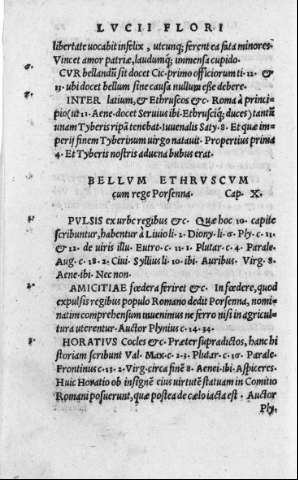 LVCII FLORI
libertate uocabit infelix, utcunq; ferent ea fata minores
Vincet amor patriæ, laudumq; immensa cupido.
CVR bellandū sit docet Cic. primo officiorum ti. 12. &
13. ubi docet bellum sine causa nullum esse debere.
INTER latium, & Ethruscos &c. Roma à princi=
pio (ut 11. Aene. docet Seruius ibi. Ethrusciq; duces) tantū
unam Tyberis ripā tenebat. Iuuenalis Saty. 8. Et quæ im=
perij finem Tyberinum uirgo natauit. Propertius prima
4. Et Tyberis nostris aduena bubus erat.
BELLVM ETHRVSCVM
cum rege Porsenna. Cap. X.
PVLSIS ex urbe regibus &c. Quæ hoc 10. capite
scribuntur, habentur à Liuio li. 2. Diony. li. 5. Ply. c. 11.
& 12. de uiris illu. Eutro. c. 11. 1. Plutar. c. 4. Parale.
Aug. c. 18. 2. Ciui. Syllius li. 10. ibi. Auribus. Virg. 8.
Aene. ibi. Nec non.
AMICITIAE fœdera feriret &c. In fœdere, quod
expulsis regibus populo Romano dedit Porsenna, nomi=
natim comprehensum inuenimus ne ferro nisi in agricul=
tura uterentur. Auctor Plynius c. 14. 34.
HORATIVS Cocles &c. Præter supradictos, hanc hi
storiam scribunt Val. Max. c. 2. 3. Plutar. c. 10. Parale.
Frontinus c. 13. 2. Virg. circa finē 8. Aenei. ibi. Aspiceres.
Huic Horatio ob insignē eius uirtutē statuam in Comitio
Romani posuerunt, quæ postea de cælo iacta est. Auctor
Ply.